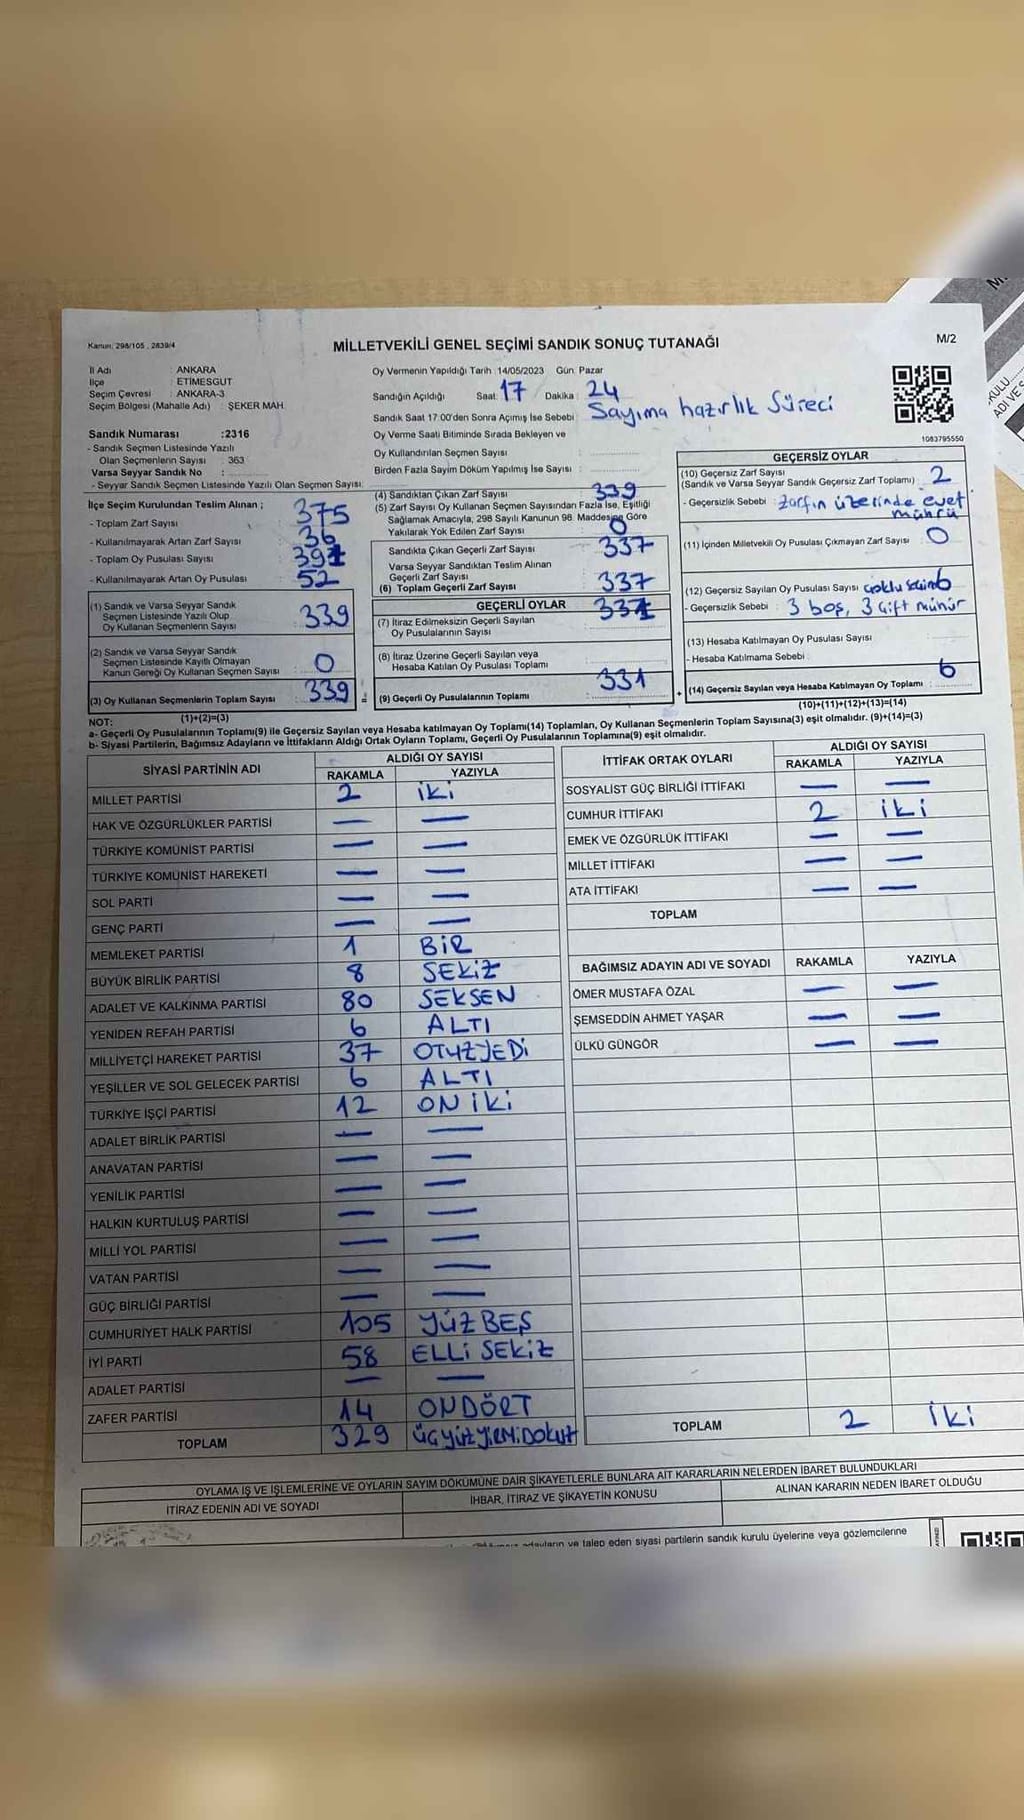 Kanun: 298/105 , 2839/4
MİLLETVEKİLİ GENEL SEÇİMİ SANDIK SONUÇ TUTANAĞI
M/2
İl Adı : ANKARA
İlçe : ETİMESGUT
Seçim Çevresi : ANKARA-3
Seçim Bölgesi (Mahalle Adı) : ŞEKER MAH.
Oy Vermenin Yapıldığı Tarih :14/05/2023 Gün: Pazar
Sandığın Açıldığı Saat: 17 Dakika: 24
Sandık Saat 17:00'den Sonra Açımış İse Sebebi : Sayıma hazırlık Süreci
Sandık Numarası :2316
- Sandık Seçmen Listesinde Yazılı
Olan Seçmenlerin Sayısı : 363
Varsa Seyyar Sandık No :
- Seyyar Sandık Seçmen Listesinde Yazılı Olan Seçmen Sayısı:
Oy Verme Saati Bitiminde Sırada Bekleyen ve
Oy Kullandırılan Seçmen Sayısı :
Birden Fazla Sayım Döküm Yapılmış İse Sayısı :
1083795550
İlçe Seçim Kurulundan Teslim Alınan ;
- Toplam Zarf Sayısı 375
- Kullanılmayarak Artan Zarf Sayısı 36
- Toplam Oy Pusulası Sayısı 391
- Kullanılmayarak Artan Oy Pusulası 52
(1) Sandık ve Varsa Seyyar Sandık
Seçmen Listesinde Yazılı Olup
Oy Kullanan Seçmenlerin Sayısı 339
(2) Sandık ve Varsa Seyyar Sandık
Seçmen Listesinde Kayıtlı Olmayan
Kanun Gereği Oy Kullanan Seçmen Sayısı 0
(3) Oy Kullanan Seçmenlerin Toplam Sayısı 339
(1)+(2)=(3)
(4) Sandıktan Çıkan Zarf Sayısı 339
(5) Zarf Sayısı Oy Kullanan Seçmen Sayısından Fazla İse, Eşitliği
Sağlamak Amacıyla, 298 Sayılı Kanunun 98. Maddesine Göre
Yakılarak Yok Edilen Zarf Sayısı 0
Sandıkta Çıkan Geçerli Zarf Sayısı 337
Varsa Seyyar Sandıktan Teslim Alınan
Geçerli Zarf Sayısı
(6) Toplam Geçerli Zarf Sayısı 337
GEÇERLİ OYLAR
(7) İtiraz Edilmeksizin Geçerli Sayılan
Oy Pusulalarının Sayısı 331
(8) İtiraz Üzerine Geçerli Sayılan veya
Hesaba Katılan Oy Pusulası Toplamı
= (9) Geçerli Oy Pusulalarının Toplamı 331 +
GEÇERSİZ OYLAR
(10) Geçersiz Zarf Sayısı
(Sandık ve Varsa Seyyar Sandık Geçersiz Zarf Toplamı) 2
- Geçersizlik Sebebi : zarfın üzerinde evet
mührü
(11) İçinden Milletvekili Oy Pusulası Çıkmayan Zarf Sayısı 0
(12) Geçersiz Sayılan Oy Pusulası Sayısı 6
- Geçersizlik Sebebi : 3 boş, 3 çift mühür
(13) Hesaba Katılmayan Oy Pusulası Sayısı
- Hesaba Katılmama Sebebi :
(14) Geçersiz Sayılan veya Hesaba Katılmayan Oy Toplamı : 6
(10)+(11)+(12)+(13)=(14)
NOT:
a- Geçerli Oy Pusulalarının Toplamı(9) ile Geçersiz Sayılan veya Hesaba katılmayan Oy Toplamı(14) Toplamları, Oy Kullanan Seçmenlerin Toplam Sayısına(3) eşit olmalıdır. (9)+(14)=(3)
b- Siyasi Partilerin, Bağımsız Adayların ve İttifakların Aldığı Ortak Oyların Toplamı, Geçerli Oy Pusulalarının Toplamına(9) eşit olmalıdır.
SİYASİ PARTİNİN ADI ALDIĞI OY SAYISI
RAKAMLA YAZIYLA
MİLLET PARTİSİ 2 iki
HAK VE ÖZGÜRLÜKLER PARTİSİ — —
TÜRKİYE KOMÜNİST PARTİSİ — —
TÜRKİYE KOMÜNİST HAREKETİ — —
SOL PARTİ — —
GENÇ PARTİ — —
MEMLEKET PARTİSİ 1 BİR
BÜYÜK BİRLİK PARTİSİ 8 SEKİZ
ADALET VE KALKINMA PARTİSİ 80 SEKSEN
YENİDEN REFAH PARTİSİ 6 ALTI
MİLLİYETÇİ HAREKET PARTİSİ 37 OTUZYEDİ
YEŞİLLER VE SOL GELECEK PARTİSİ 6 ALTI
TÜRKİYE İŞÇİ PARTİSİ 12 ON İKİ
ADALET BİRLİK PARTİSİ — —
ANAVATAN PARTİSİ — —
YENİLİK PARTİSİ — —
HALKIN KURTULUŞ PARTİSİ — —
MİLLİ YOL PARTİSİ — —
VATAN PARTİSİ — —
GÜÇ BİRLİĞİ PARTİSİ — —
CUMHURİYET HALK PARTİSİ 105 YÜZ BEŞ
İYİ PARTİ 58 ELLİ SEKİZ
ADALET PARTİSİ — —
ZAFER PARTİSİ 14 ONDÖRT
TOPLAM 329 ÜÇYÜZYİRMİDOKUZ
İTTİFAK ORTAK OYLARI ALDIĞI OY SAYISI
RAKAMLA YAZIYLA
SOSYALİST GÜÇ BİRLİĞİ İTTİFAKI — —
CUMHUR İTTİFAKI 2 iki
EMEK VE ÖZGÜRLÜK İTTİFAKI — —
MİLLET İTTİFAKI — —
ATA İTTİFAKI — —
TOPLAM
BAĞIMSIZ ADAYIN ADI VE SOYADI RAKAMLA YAZIYLA
ÖMER MUSTAFA ÖZAL — —
ŞEMSEDDİN AHMET YAŞAR — —
ÜLKÜ GÜNGÖR — —
TOPLAM 2 iki
OYLAMA İŞ VE İŞLEMLERİNE VE OYLARIN SAYIM DÖKÜMÜNE DAİR ŞİKAYETLERLE BUNLARA AİT KARARLARIN NELERDEN İBARET BULUNDUKLARI
İTİRAZ EDENİN ADI VE SOYADI İHBAR, İTİRAZ VE ŞİKAYETİN KONUSU ALINAN KARARIN NEDEN İBARET OLDUĞU
adayların ve talep eden siyasi partilerin sandık kurulu üyelerine veya gözlemcilerine